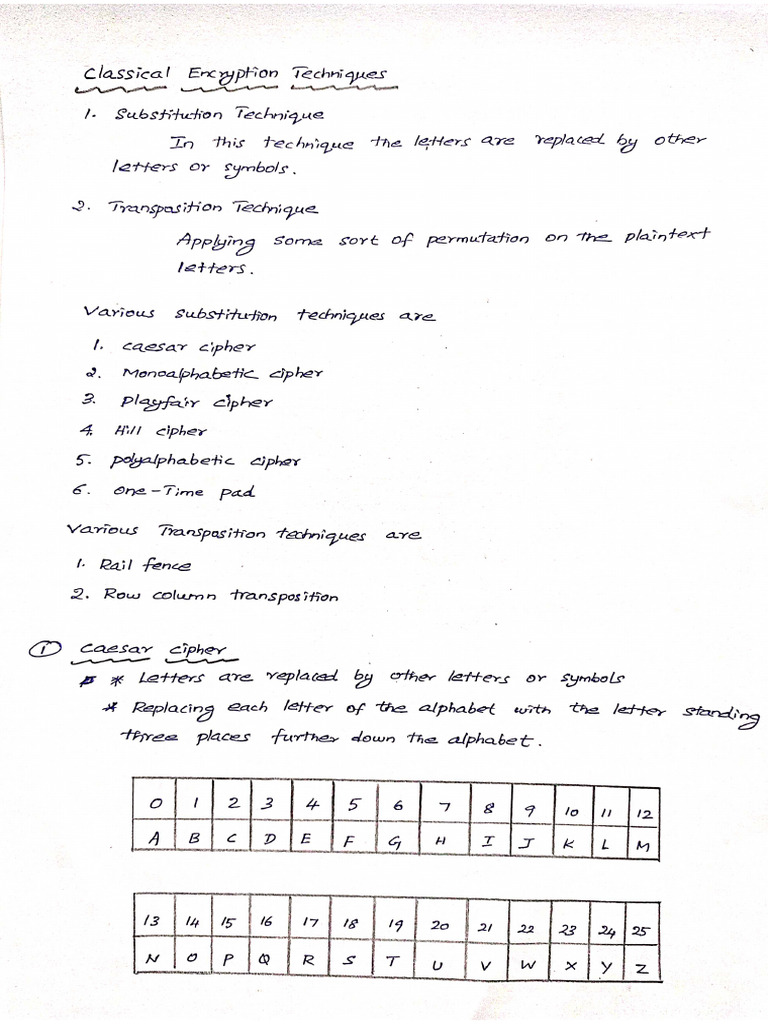 Classical Encryption Techniques
1. Substitution Technique
In this technique the letters are replaced by other
letters or symbols.
2. Transposition Technique
Applying some sort of permutation on the plaintext
letters.
Various substitution techniques are
1. caesar cipher
2. Monoalphabetic cipher
3. Playfair cipher
4. Hill cipher
5. polyalphabetic cipher
6. One-Time pad
Various Transposition techniques are
1. Rail fence
2. Row column transposition
1 Caesar Cipher
* Letters are replaced by other letters or symbols
* Replacing each letter of the alphabet with the letter standing
three places further down the alphabet.
0 1 2 3 4 5 6 7 8 9 10 11 12
A B C D E F G H I J K L M
13 14 15 16 17 18 19 20 21 22 23 24 25
N O P Q R S T U V W X Y Z